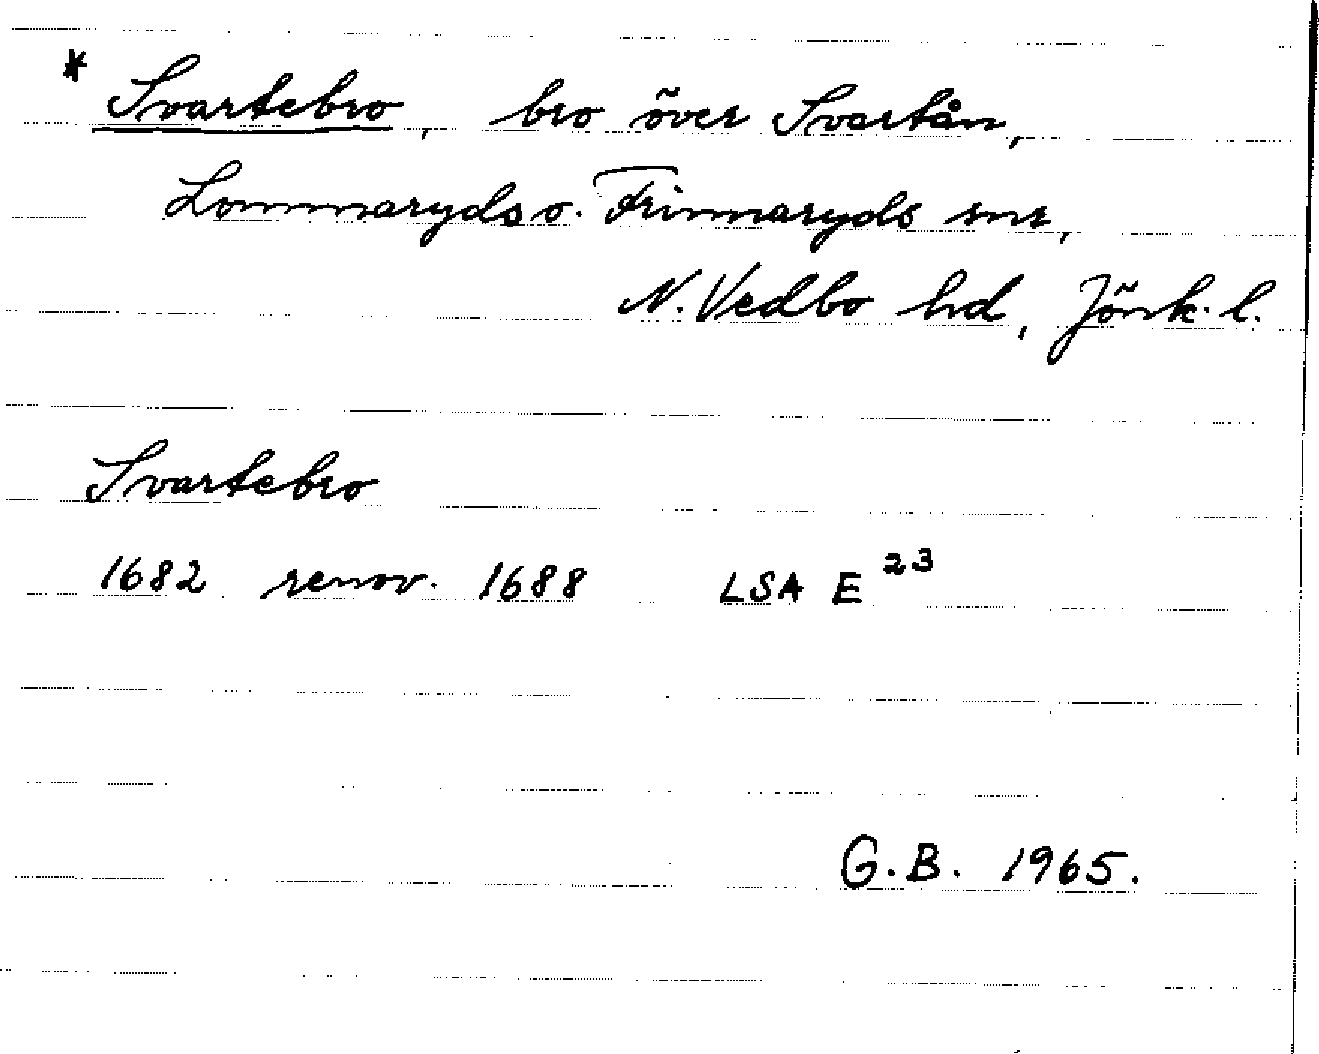 * Svartebro, bro över Svartån,
Lommaryds o. Frinnaryds snr,
N. Vedbo hd, Jönk. l.
Svartebro
1682 renov. 1688 LSA E 23
G.B. 1965.